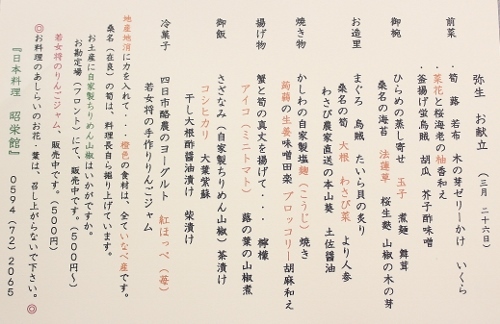 弥生 お献立 （三月 二十六日）
前菜 ・筍 蕗 若布 木の芽ゼリーかけ いくら
・菜花と桜海老の柚香和え
・釜揚げ蛍烏賊 胡瓜 芥子酢味噌
御椀 ひらめの蒸し寄せ 玉子 煮麺 舞茸
桑名の海苔 法蓮草 桜生麩 山椒の木の芽
お造里 まぐろ 烏賊 たいら貝の炙り
桑名の筍 大根 わさび菜 より人参
わさび農家直送の本山葵 土佐醤油
焼き物 かしわの自家製塩麹（こうじ）焼き
蒟蒻の生姜味噌田楽 ブロッコリー胡麻和え
揚げ物 蟹と筍の真丈を揚げて・・・ 檸檬
アイコ（ミニトマト） 蕗の葉の山椒煮
御飯 さざなみ（自家製ちりめん山椒）茶漬け
コシヒカリ 大葉紫蘇
干し大根酢醤油漬け 柴漬け
冷菓子 四日市酪農のヨーグルト 紅ほっぺ（苺）
若女将の手作りりんごジャム
地産地消に力を入れて・・・橙色の食材は、全ていなべ産です。
桑名（在良）の筍は、料理長自ら掘り上げています。
お土産に自家製ちりめん山椒はいかがですか。
お勘定場（フロント）にて、販売中です。（500円～）
若女将のりんごジャム、販売中です。（500円）
◎お料理のあしらいのお花・葉は、召し上がらないで下さい。◎
『日本料理 昭栄館』 0594（72）2065